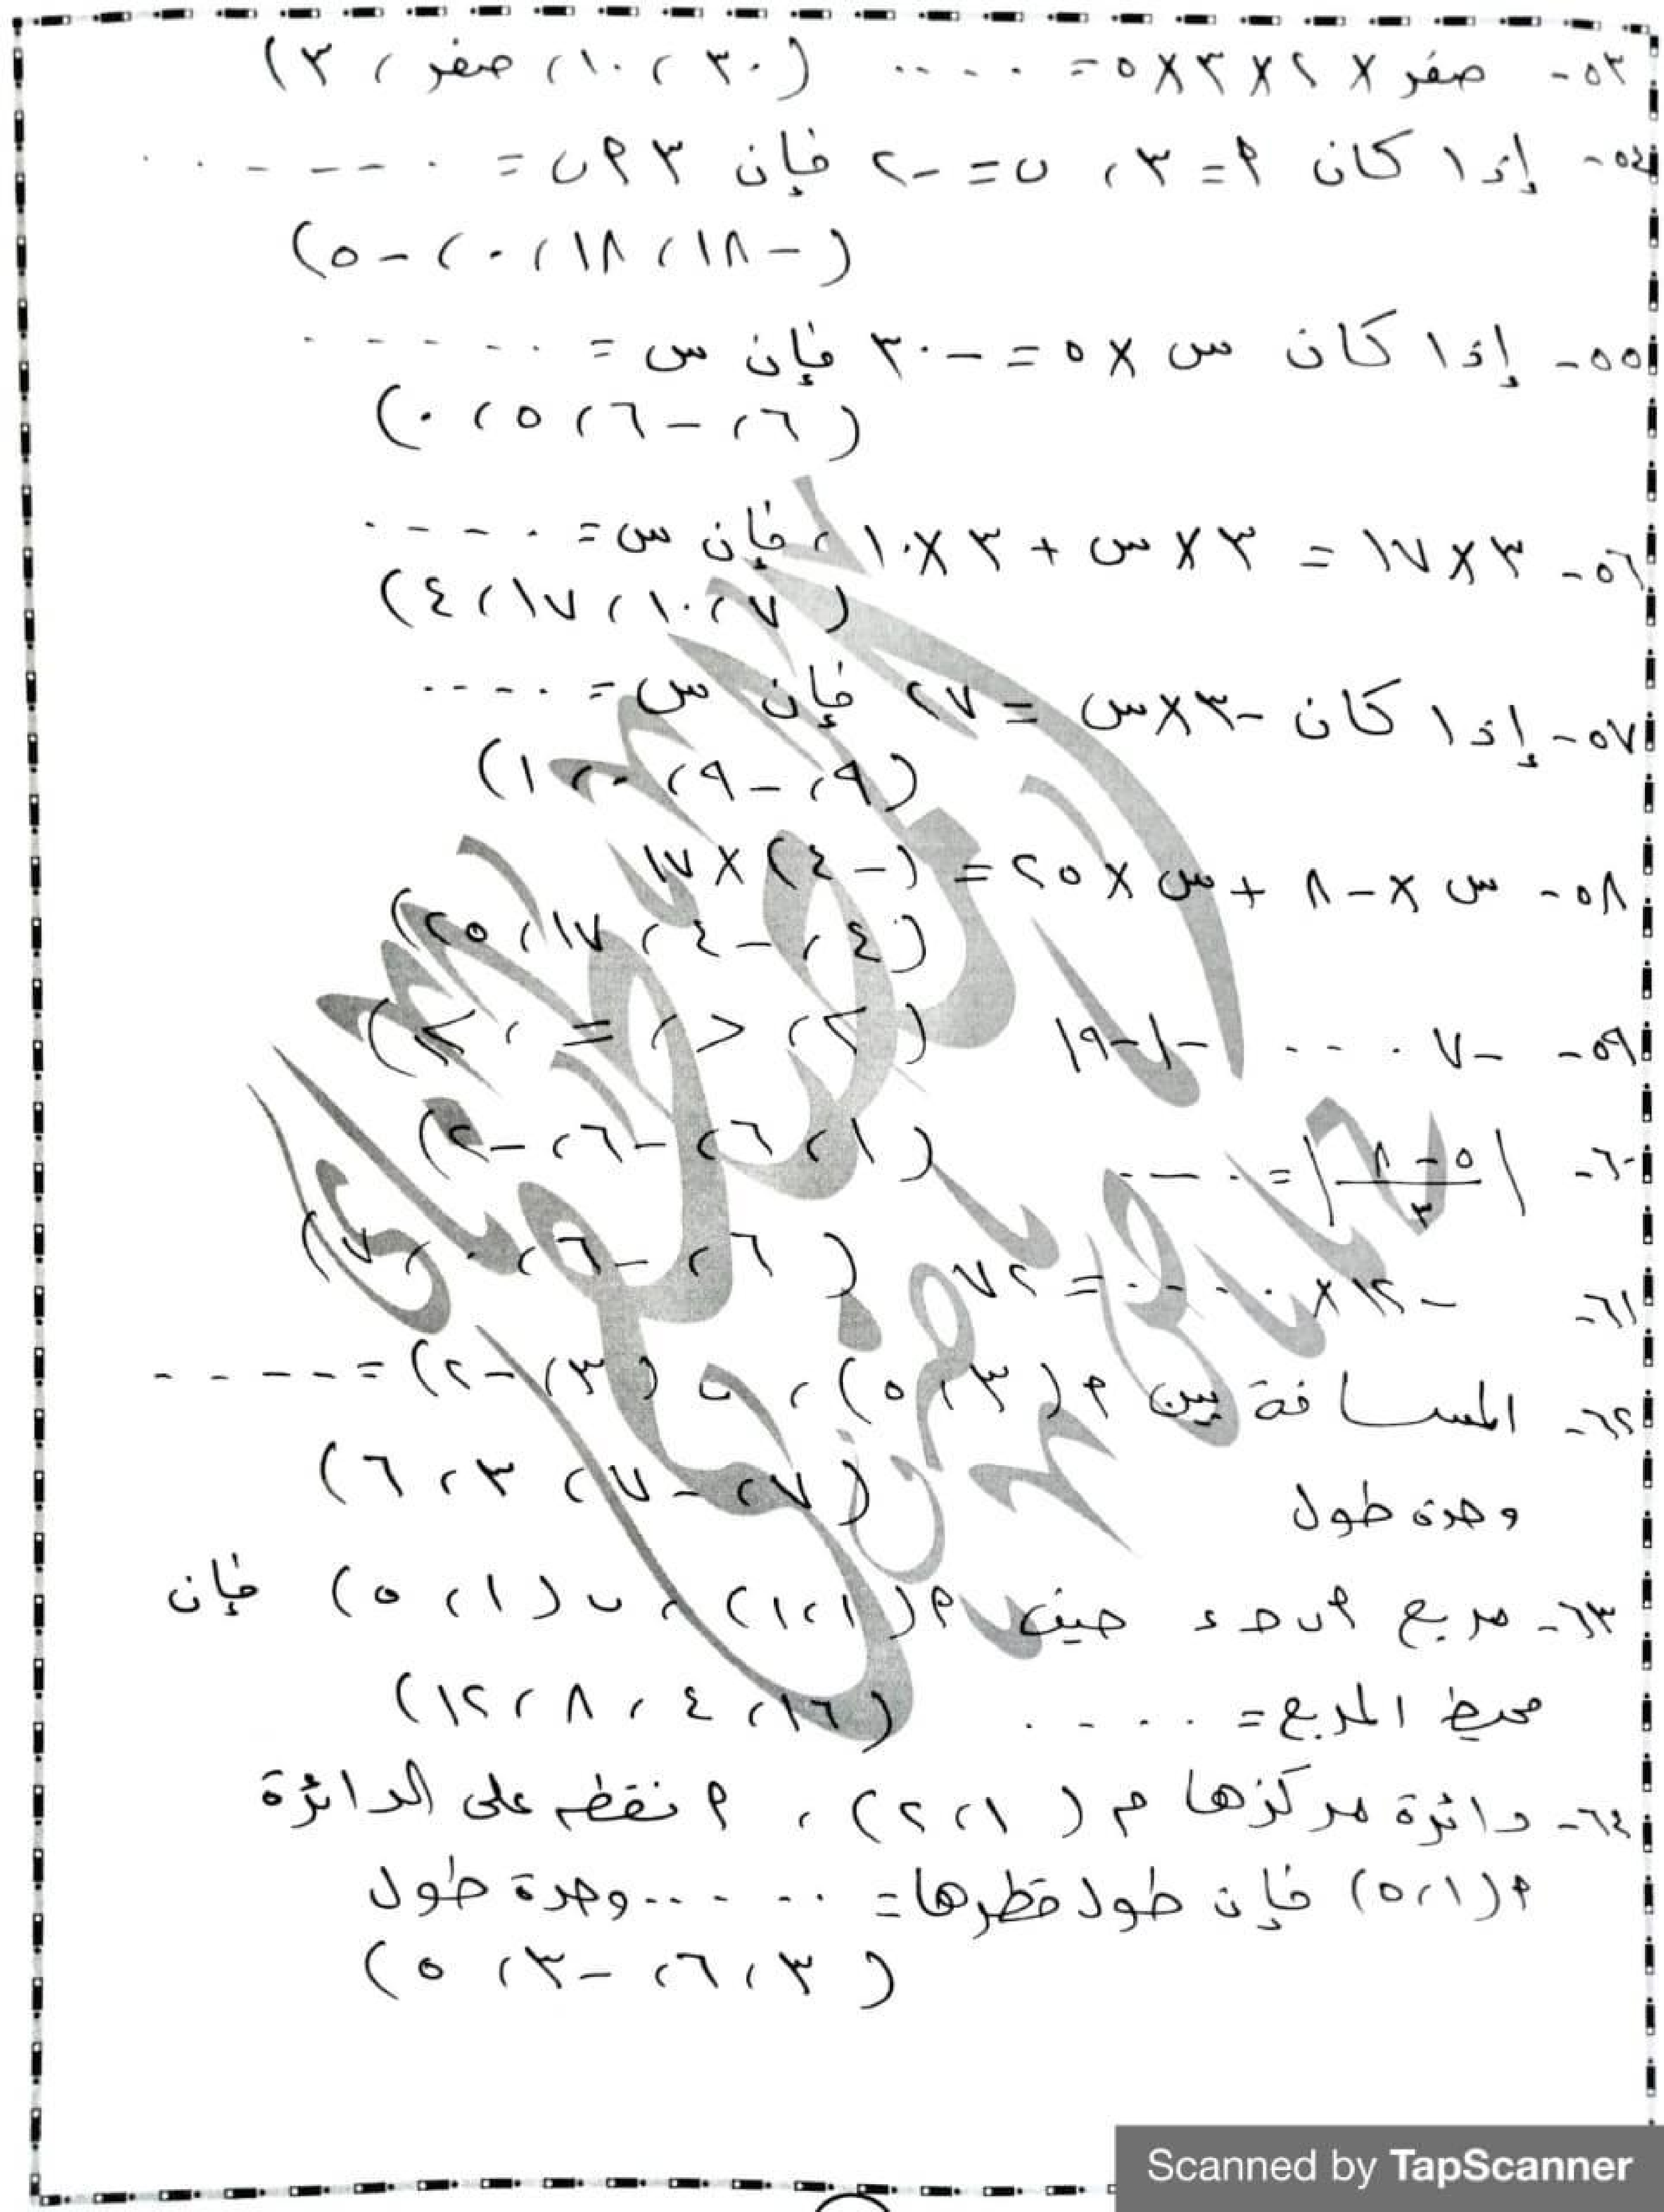 ٥٣- صفر × ٢ × ٣ × ٥ = .... (٣٠ ، ١٠ ، صفر ، ٣)
٥٤- إذا كان م = ٣ ، ن = -٢ فإن ٣ م ن = ......
(-١٨ ، ١٨ ، ٠ ، -٥)
٥٥- إذا كان س × ٥ = -٣٠ فإن س = ......
(٦ ، -٦ ، ٥ ، ٠)
٥٦- ٣ × ١٧ = ٣ × س + ٣ × ١٠ ، فإن س = .....
(٧ ، ١٠ ، ١٧ ، ٤)
٥٧- إذا كان -٣ × س = ٢٧ فإن س = ....
(٩ ، -٩ ، ٠ ، ١)
٥٨- س × -٨ + س × ٢٥ = (-٤) × ١٧
(٤ ، -٤ ، ١٧ ، ٢٥)
٥٩- -٧ .... -|-٩| (> ، < ، = ، ≥)
٦٠- | / ٣| = .... (١ ، ٦ ، -٦ ، -٢)
٦١- -١٢ × .... = ٧٢ (٦ ، -٦ ، ٠ ، ٧)
٦٢- المسافة بين م (٣ ، ٥) ، ن (٣ ، -٢) = .....
وحدة طول (٧ ، -٧ ، ٣ ، ٦)
٦٣- مربع م ن ح ء حيث م (١ ، ١) ، ن (١ ، ٥) فإن
محيط المربع = .... (١٦ ، ٤ ، ٨ ، ١٢)
٦٤- دائرة مركزها م (١ ، ٢) ، م نقطه على الدائرة
م (١ ، ٥) فإن طول قطرها = ..... وحدة طول
(٣ ، ٦ ، -٣ ، ٥)
Scanned by TapScanner